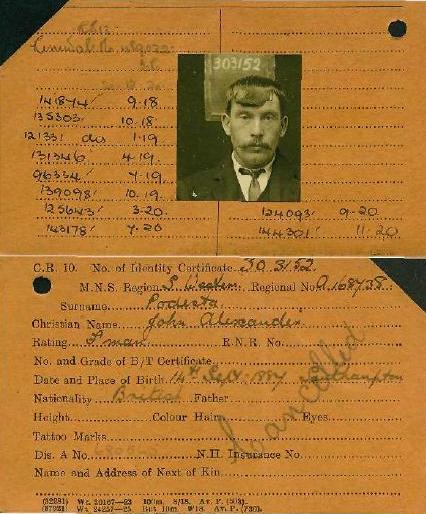 303152
141874 9.18
135303 10.18
121331 do 1.19
131346 4.19
96334 7.19
139098 10.19
125643 3-20. 124093 9-20
143178 7-20 144301 11.20
C.R. 10. No. of Identity Certificate 303152
M.N.S. Region S. Western Regional No.
Surname Podesta
Christian Name John Alexander
Rating R.N.R. No.
No. and Grade of B/T Certificate
Date and Place of Birth 14th 1887
Nationality British Father
Height Colour Hair Eyes
Tattoo Marks
Dis. A No. N.H. Insurance No.
Name and Address of Next of Kin
Cancelled
Wt. 20167—23 100m. 8/18. Av. P.
Wt. 24257—25 But 10m. 9/18. Av. P.